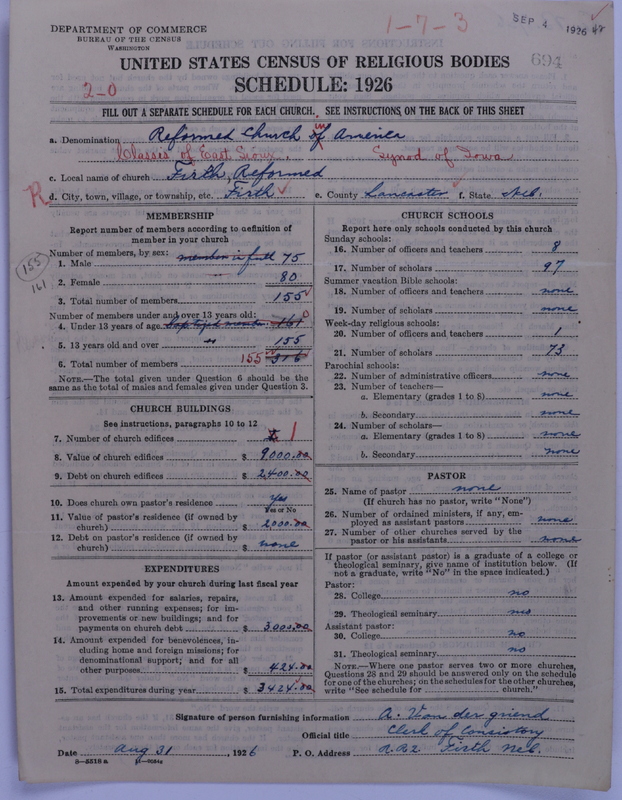 DEPARTMENT OF COMMERCE
BUREAU OF THE CENSUS
WASHINGTON
1-7-3
SEP 4 1926
694
UNITED STATES CENSUS OF RELIGIOUS BODIES
SCHEDULE: 1926
2-0
FILL OUT A SEPARATE SCHEDULE FOR EACH CHURCH. SEE INSTRUCTIONS ON THE BACK OF THIS SHEET
a. Denomination Reformed Church in America
Classis of East Sioux, Synod of Iowa
c. Local name of church Firth Reformed
R d. City, town, village, or township, etc. Firth e. County Lancaster f. State Neb.
MEMBERSHIP
Report number of members according to definition of member in your church
Number of members, by sex: member in full
1. Male 75
2. Female 80
3. Total number of members 155
155
161
Number of members under and over 13 years old:
4. Under 13 years of age 161 0
5. 13 years old and over " 155
6. Total number of members 155 316
NOTE.—The total given under Question 6 should be the same as the total of males and females given under Question 3.
CHURCH BUILDINGS
See instructions, paragraphs 10 to 12
7. Number of church edifices 1
8. Value of church edifices $ 9000.00
9. Debt on church edifices $ 2400.00
10. Does church own pastor's residence yes
Yes or No
11. Value of pastor's residence (if owned by church) $ 2000.00
12. Debt on pastor's residence (if owned by church) $ none
EXPENDITURES
Amount expended by your church during last fiscal year
13. Amount expended for salaries, repairs, and other running expenses; for improvements or new buildings; and for payments on church debt $ 3000.00
14. Amount expended for benevolences, including home and foreign missions; for denominational support; and for all other purposes $ 424.00
15. Total expenditures during year $ 3424.00
CHURCH SCHOOLS
Report here only schools conducted by this church
Sunday schools:
16. Number of officers and teachers 8
17. Number of scholars 97
Summer vacation Bible schools:
18. Number of officers and teachers none
19. Number of scholars none
Week-day religious schools:
20. Number of officers and teachers 1
21. Number of scholars 73
Parochial schools:
22. Number of administrative officers none
23. Number of teachers—
a. Elementary (grades 1 to 8) none
b. Secondary none
24. Number of scholars—
a. Elementary (grades 1 to 8) none
b. Secondary none
PASTOR
25. Name of pastor none
(If church has no pastor, write "None")
26. Number of ordained ministers, if any, employed as assistant pastors none
27. Number of other churches served by the pastor or his assistants none
If pastor (or assistant pastor) is a graduate of a college or theological seminary, give name of institution below. (If not a graduate, write "No" in the space indicated.)
Pastor:
28. College no
29. Theological seminary no
Assistant pastor:
30. College no
31. Theological seminary no
NOTE.—Where one pastor serves two or more churches, Questions 28 and 29 should be answered only on the schedule for one of the churches; on the schedules for the other churches, write "See schedule for church."
Signature of person furnishing information A. Van der griend
Official title Clerk of Consistory
Date Aug 31, 1926 P. O. Address R.R.2 Firth Neb.
8—5518 a